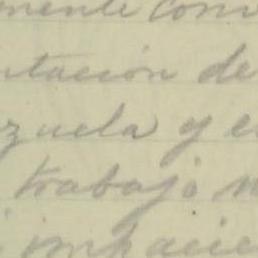 mente com
ntación de
zuela y e
trabajo
impacie